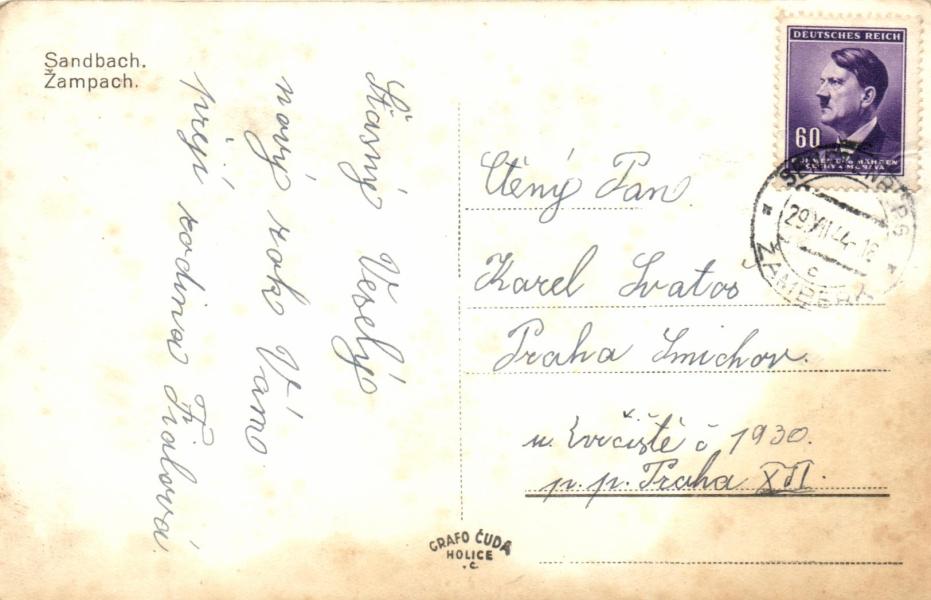 Sandbach.
Žampach.
Štasný Veselý
nový rok Vám
přejí rodina Fialová.
Ctěný Pan.
Karel Svatoš
Praha Smíchov.
u. Cvičiště č 1930.
p. p. Praha XII.
GRAFO ČUDA
HOLICE
.C.
DEUTSCHES REICH
60
BÖHMEN UND MÄHREN
ČECHY A MORAVA
SENFTENBERG
29.XII.44-16
c
ŽAMBERK